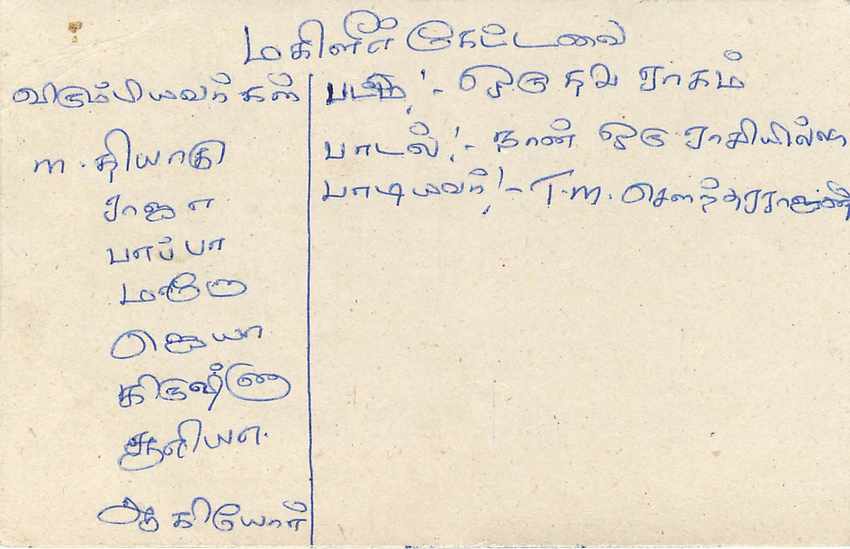 மகளிர் கேட்டவை
விரும்பியவர்கள்
M. தியாகு
ராஜா
பாப்பா
ஜெயா
கிருஷ்ணா
ஆகியோர்
படம்:- ஒரு தலை ராகம்
பாடல்:- நான் ஒரு ராசியில்லா
பாடியவர்:- T.M. சௌந்தரராஜன்